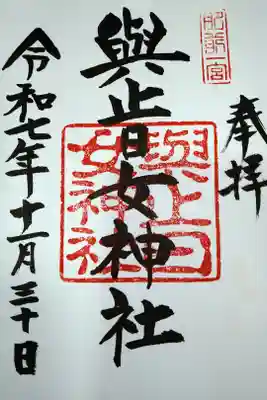 奉拝
肥前一宮
與止日女神社
與止日女神社
令和七年十一月三十日